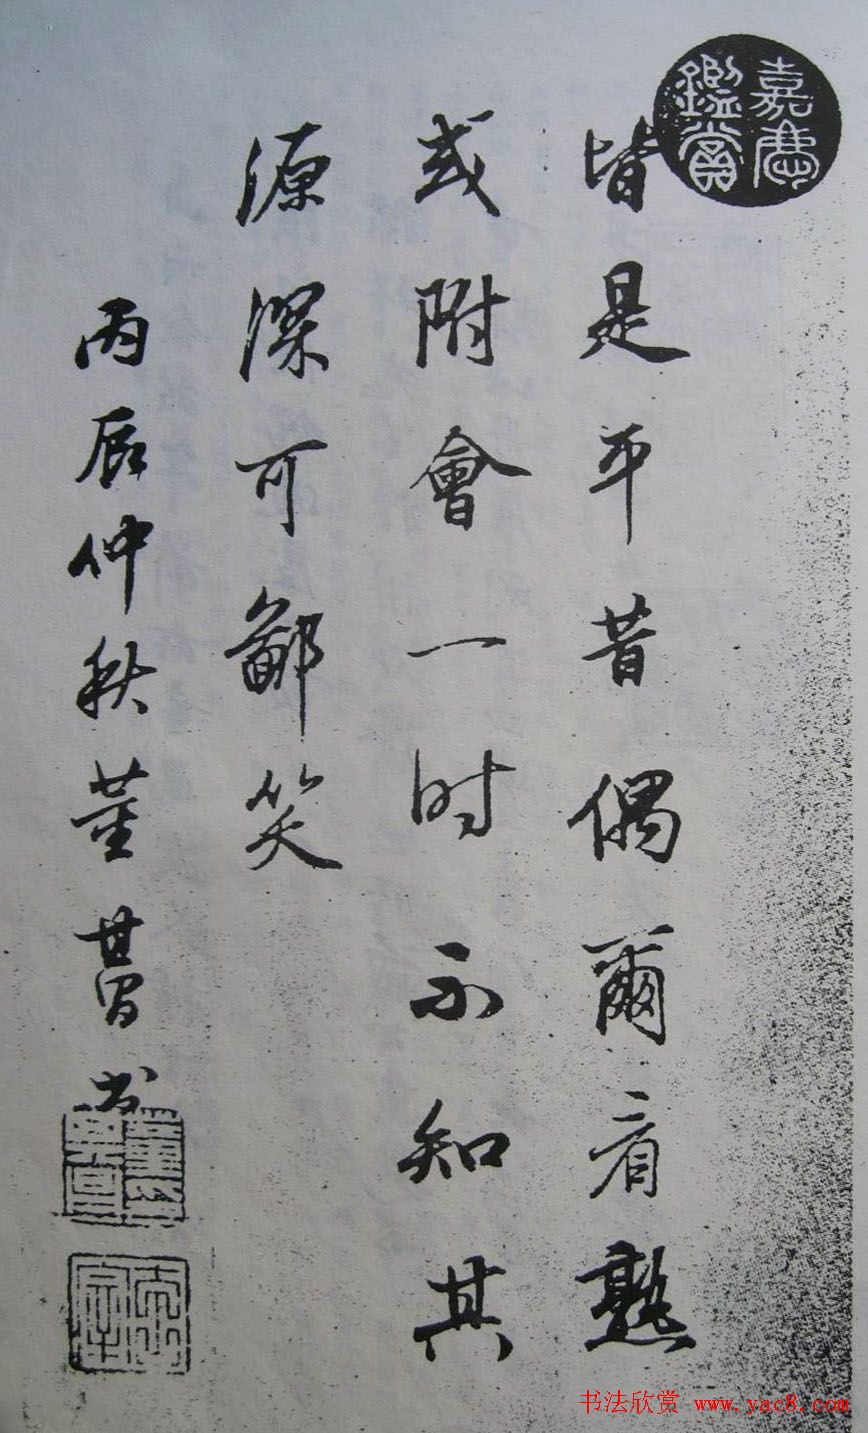 嘉慶
鑑賞
皆是平昔偶爾看熟
或附會一时不知其
源深可鄙笑
丙辰仲秋董其昌书
书法欣赏 www.yac8.com